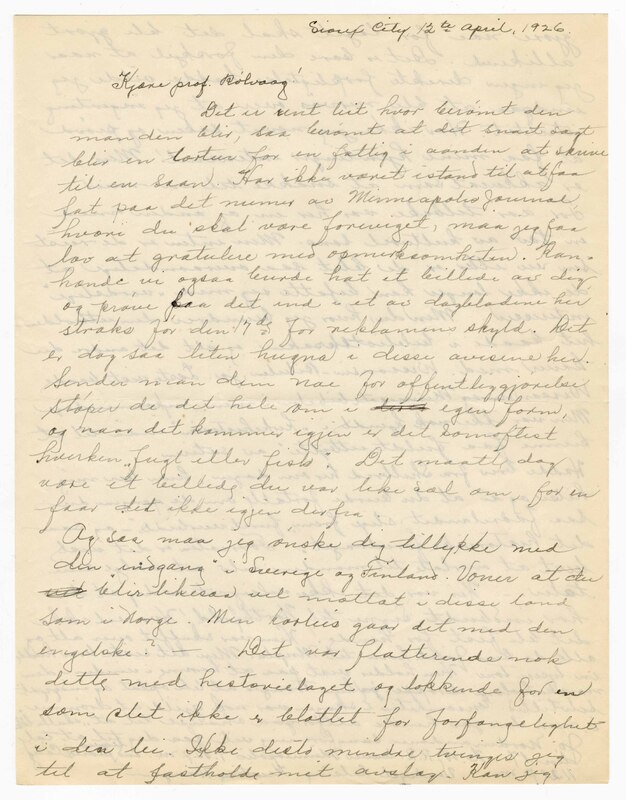 Sioux City 12te April, 1926.
Kjære prof. Rölvaag!
Det er rent leit hvor berømt den
manden blir, saa berømt at det snart sagt
blir en tortur for en fattig i aanden at skrive
til en saan. Har ikke været istand til at faa
fat paa det numer av Minneapolis Journal,
hvori du skal være foreviget, maa jeg faa
lov at gratulere med opmerksomheten. Kan-
hænde vi ogsaa burde hat et billede av dig
og prøve faa det ind i et av dagbladene her
straks før den 17de for reklamens skyld. Det
er dog saa liten hugna i disse avisene her.
Sender man dem noe for offentliggjørelse
støper de det hele om i egen form,
og naar det kommer igjen er det somoftest
hverken "fugl eller fisk". Det maatte dog
være et billede du var like sæl om, for en
faar det ikke igjen derfra.
Og saa maa jeg ønske dig tillykke med
din "indgang" i Sverige og Finland. Voner at du
blir likesaa vel mottat i disse land
som i Norge. Men korleis gaar det med den
engelske? — Det var flatterende nok
dette med historielaget og lokkende for en
som slet ikke er blottet for forfængelighet
i den lei. Ikke desto mindre tvinges jeg
til at fastholde mit avslag. Kan jeg